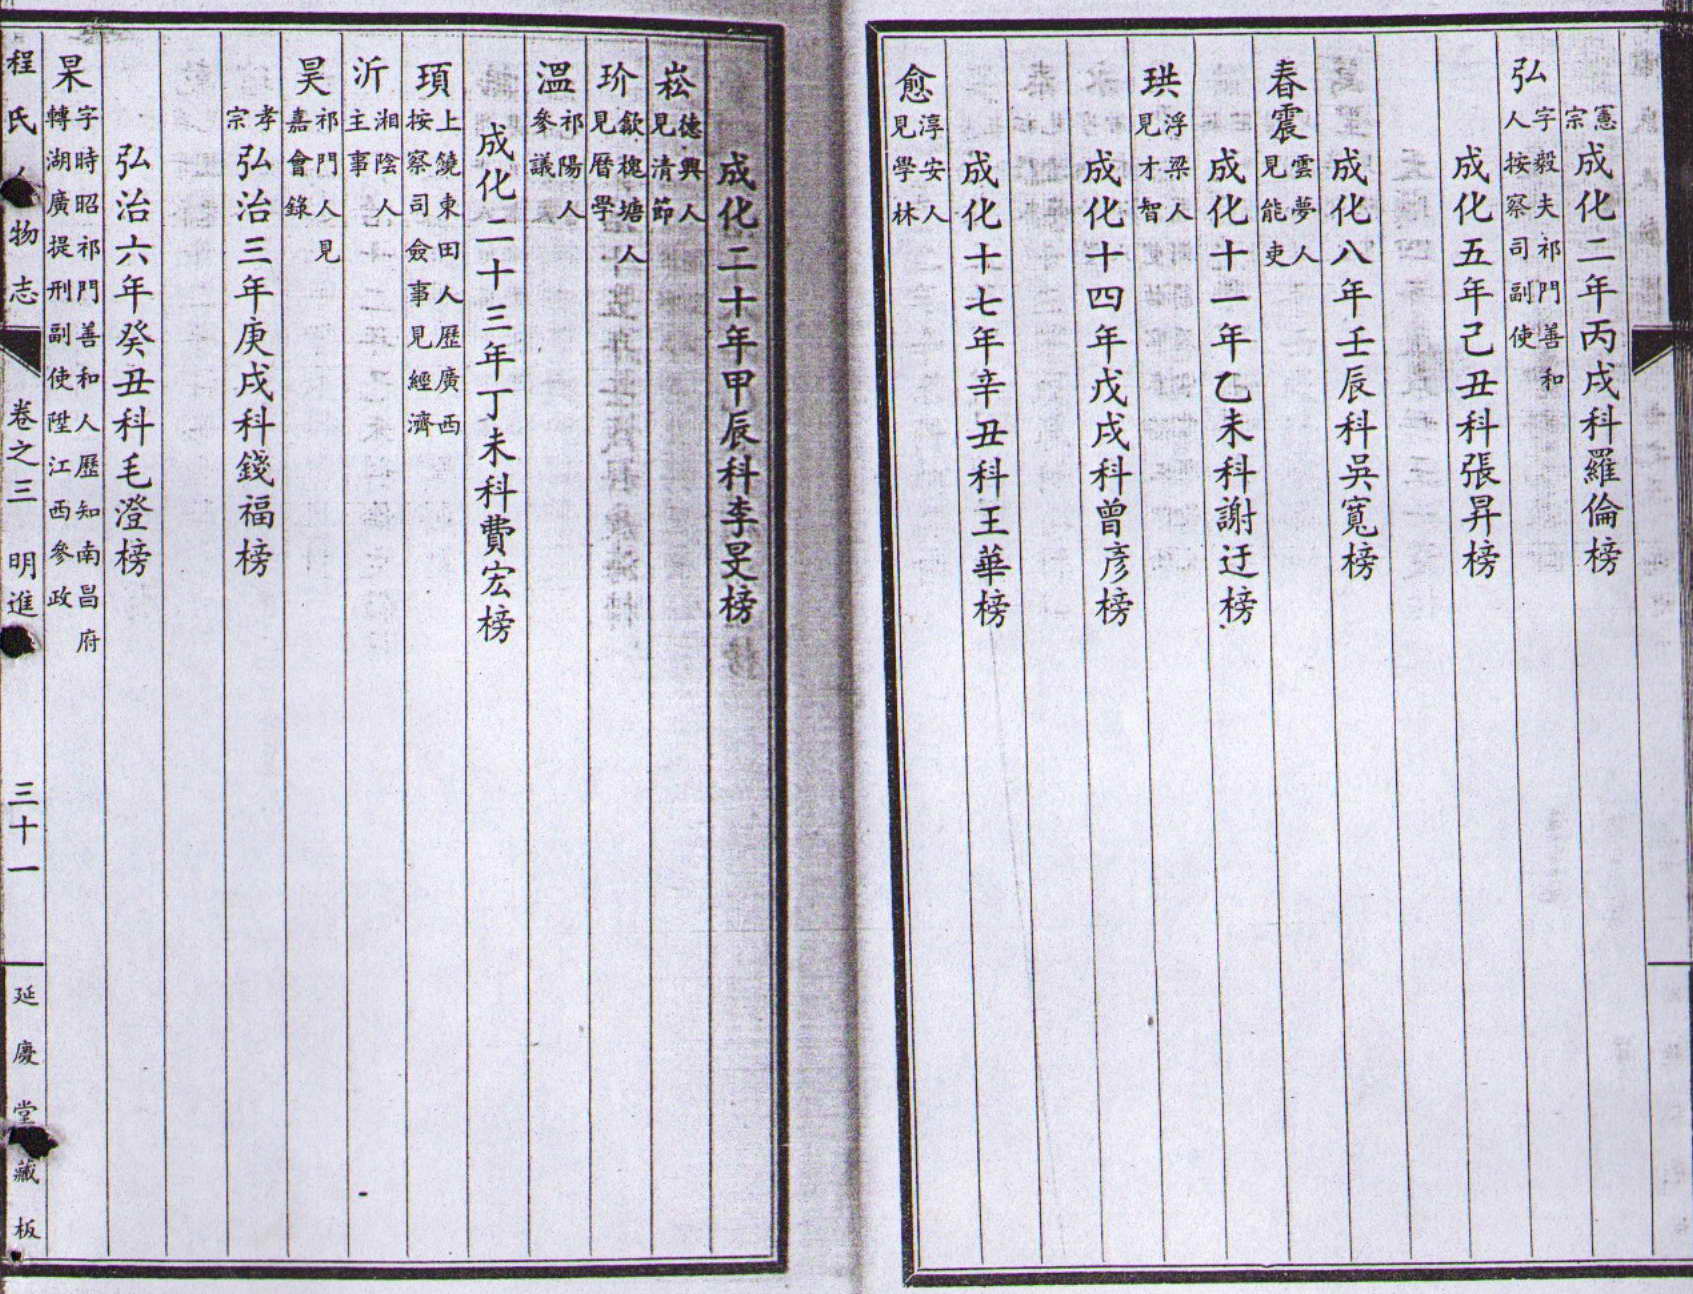 憲宗 成化二年丙戌科羅倫榜
弘 字毅夫祁門善和人按察司副使
成化五年己丑科張昇榜
成化八年壬辰科吳寬榜
春震 雲夢人見能吏
成化十一年乙未科謝迁榜
珙 浮梁人見才智
成化十四年戊戌科曾彥榜
成化十七年辛丑科王華榜
愈 淳安人見學林
成化二十年甲辰科李旻榜
崧 德興人見清節
玠 歙槐塘人見曆學
溫 祁陽人參議
成化二十三年丁未科費宏榜
頊 上饒東田人歷廣西按察司僉事見經濟
沂 湘陰人主事
昊 祁門人見嘉會錄
孝宗 弘治三年庚戌科錢福榜
弘治六年癸丑科毛澄榜
杲 字時昭祁門善和人歷知南昌府轉湖廣提刑副使陞江西參政
程氏人物志 卷之三 明進 三十一 延慶堂藏板